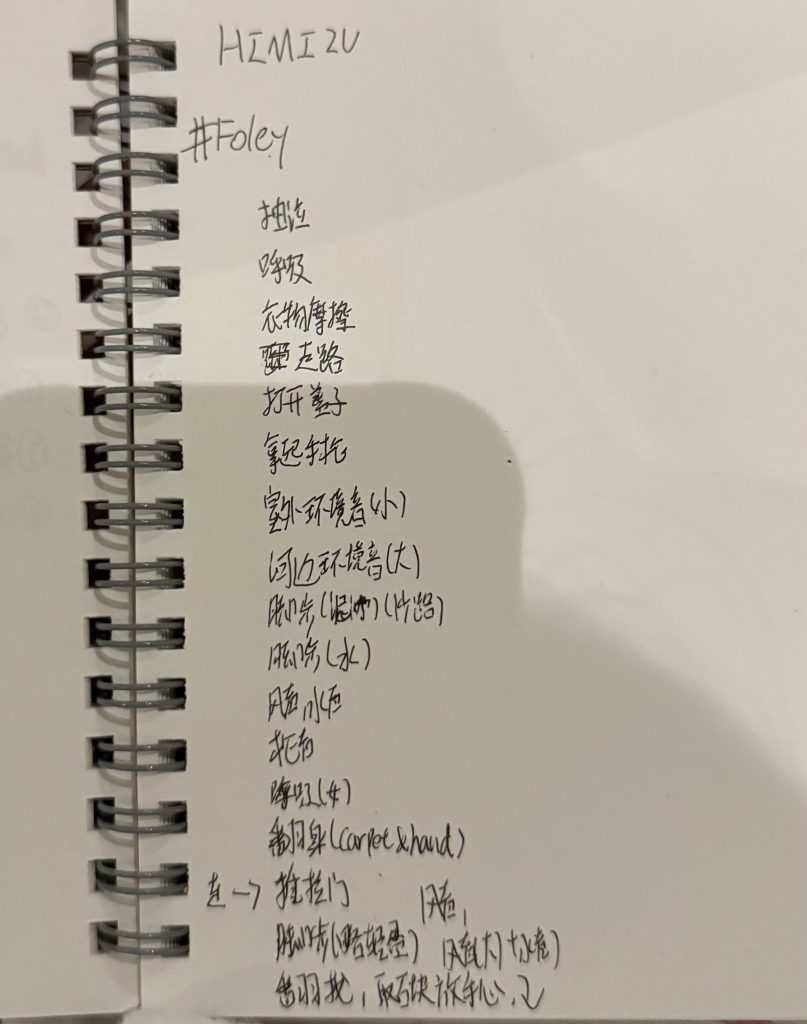 HIMIZU
#Foley
抽泣
呼吸
衣物摩擦
走路
打开盖子
拿起手枪
室外环境音(小)
河边环境音(大)
脚步(泥泞)(片段)
脚步(水)
风声,水声
枪声
呼吸(女)
翻身(carpet&hand)
左→ 推拉门
风声,
脚步(略轻盈) 风声(大)+水声)
翻找,取石块放手心.